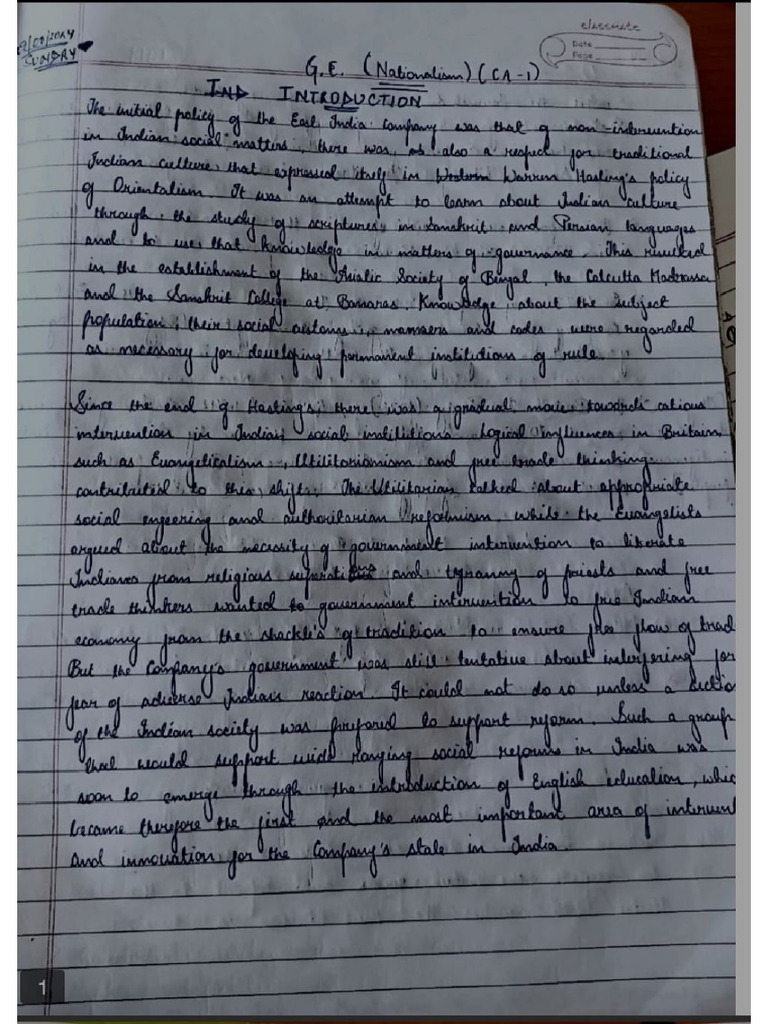 SUNDAY
classmate
Date
Page
G.E. (Nationalism) (CA-1)
IND INTRODUCTION
The initial policy of the East India Company was that of non-intervention
in Indian social matters, there was, as also a respect for traditional
Indian culture that expressed itself in Western Warren Hasting's policy
of Orientalism. It was an attempt to learn about Indian culture
through the study of scriptures in Sanskrit and Persian languages
and to use that knowledge in matters of governance. This resulted
in the establishment of the Asiatic Society of Bengal, the Calcutta Madrassa
and the Sanskrit College at Banaras. Knowledge about the subject
population, their social customs, manners and codes were regarded
as necessary for developing permanent institutions of rule.
Since the end of Hasting's, there (was) a gradual move towards catious
intervention in Indian social institutions. Logical influences in Britain
such as Evangelicalism, Utilitarianism and free trade thinking
contributed to this shift. The Utilitarian talked about appropriate
social engeering and authoritarian reformism while the Evangelists
argued about the necessity of government intervention to liberate
Indians from religious and tyranny of priests and free
trade thinkers wanted to government intervention to free Indian
economy from the shackle's of tradition to ensure free flow of trad
But the Company's government was still tentative about interfering for
fear of adverse Indian reaction. It could not do so unless a sectio
of the Indian society was prepared to support reform. Such a group
that would support wide ranging social reforms in India was
soon to emerge through the introduction of English education, whic
became therefore the first and the most important area of interven
and innovation for the Company's state in India.
1